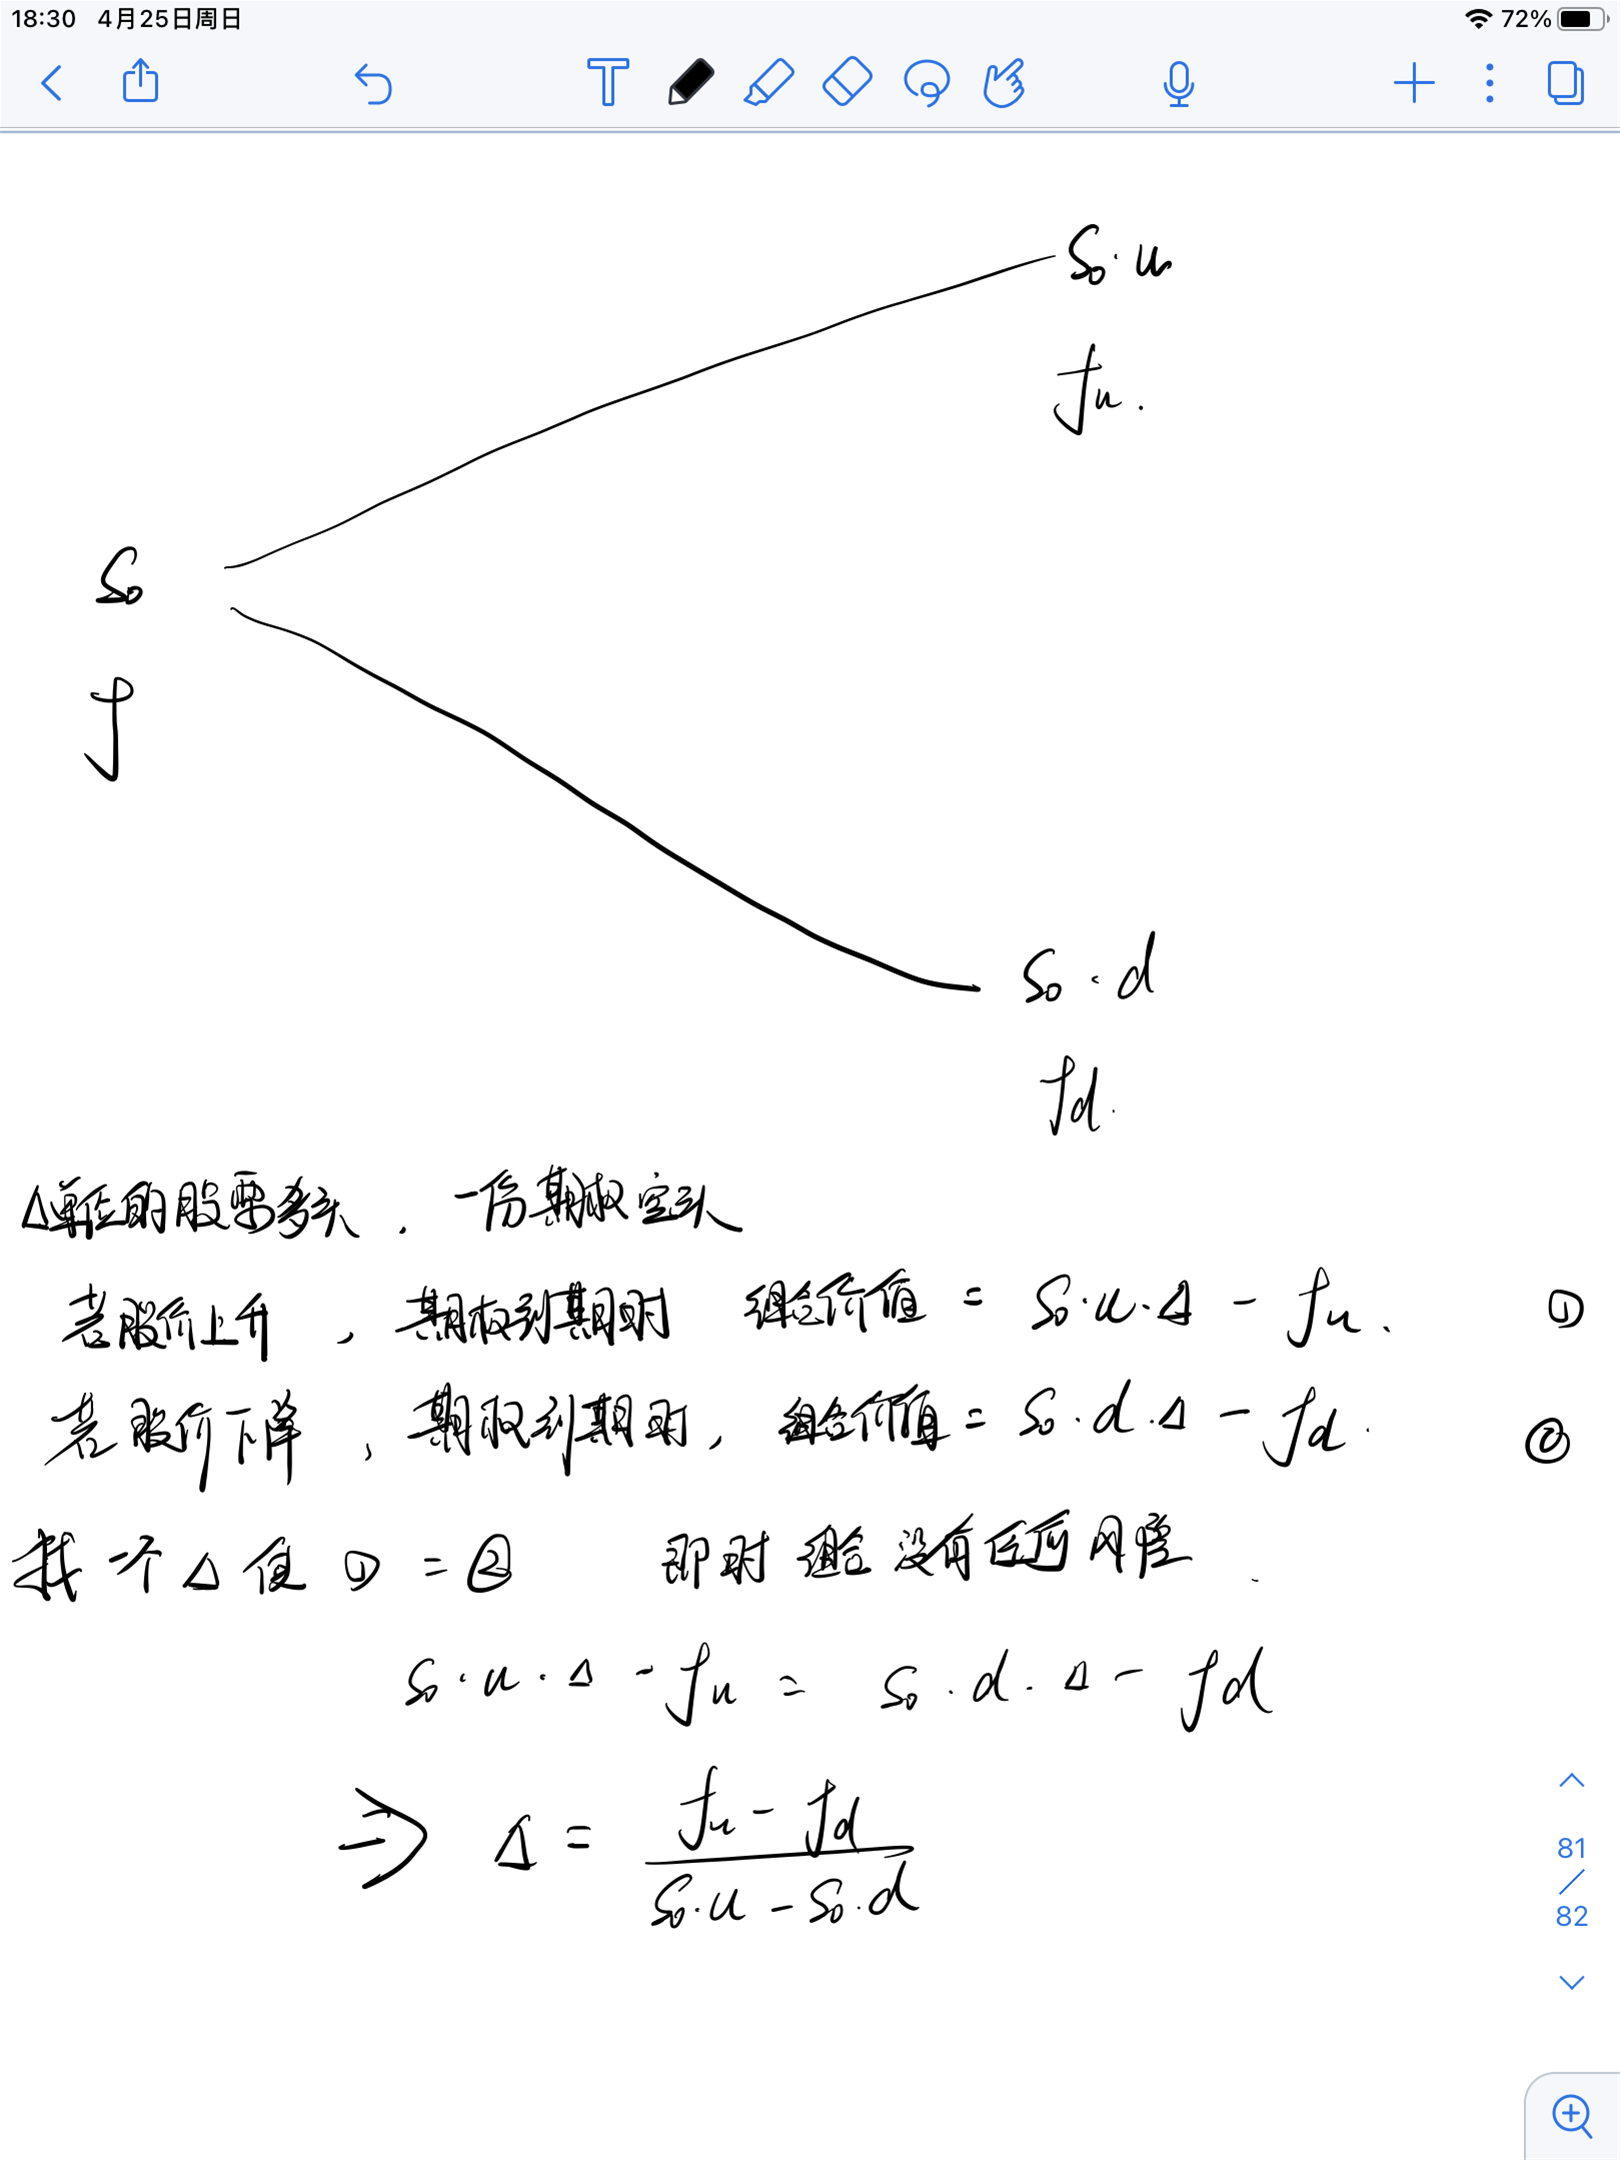 18:30 4月25日周日 72%
T
S₀·u
fu.
S₀
f
S₀·d
fd.
Δ单位的股票多头,一份期权空头
若股价上升,期权到期时 组合价值 = S₀·u·Δ - fu. ①
若股价下降,期权到期时,组合价值 = S₀·d·Δ - fd. ②
找一个Δ使①=② 即时组合没有任何风险.
S₀·u·Δ - fu = S₀·d·Δ - fd
⇒ Δ = (fu - fd) / (S₀·u - S₀·d)
81
/
82